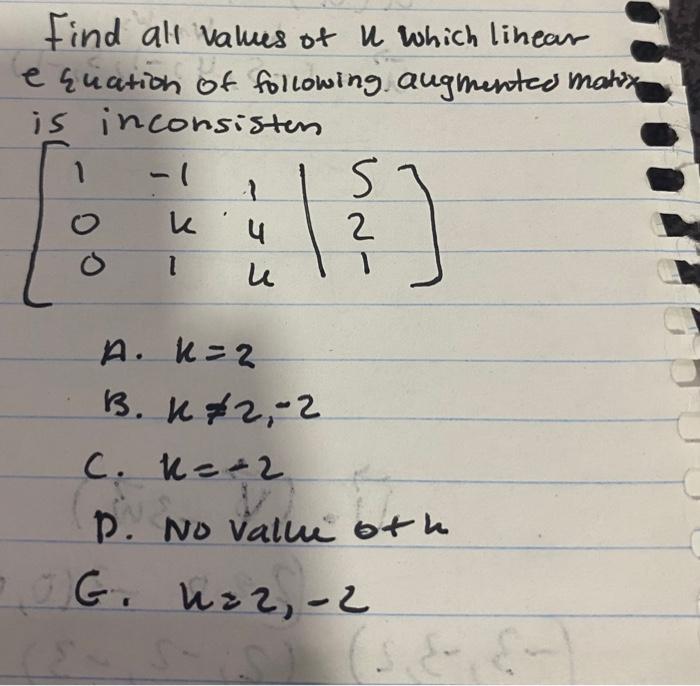 Find all values of k which linear
equation of following augmented matrix
is inconsisten
1 -1 1 | 5
0 k 4 | 2
0 1 k | 1
A. k = 2
B. k ≠ 2, -2
C. k = -2
D. No value of k
G. k = 2, -2